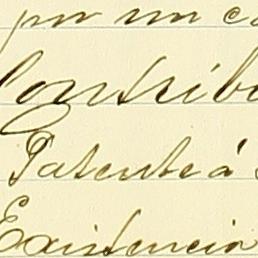 por un ca
Contribu
Patente á
Existencia